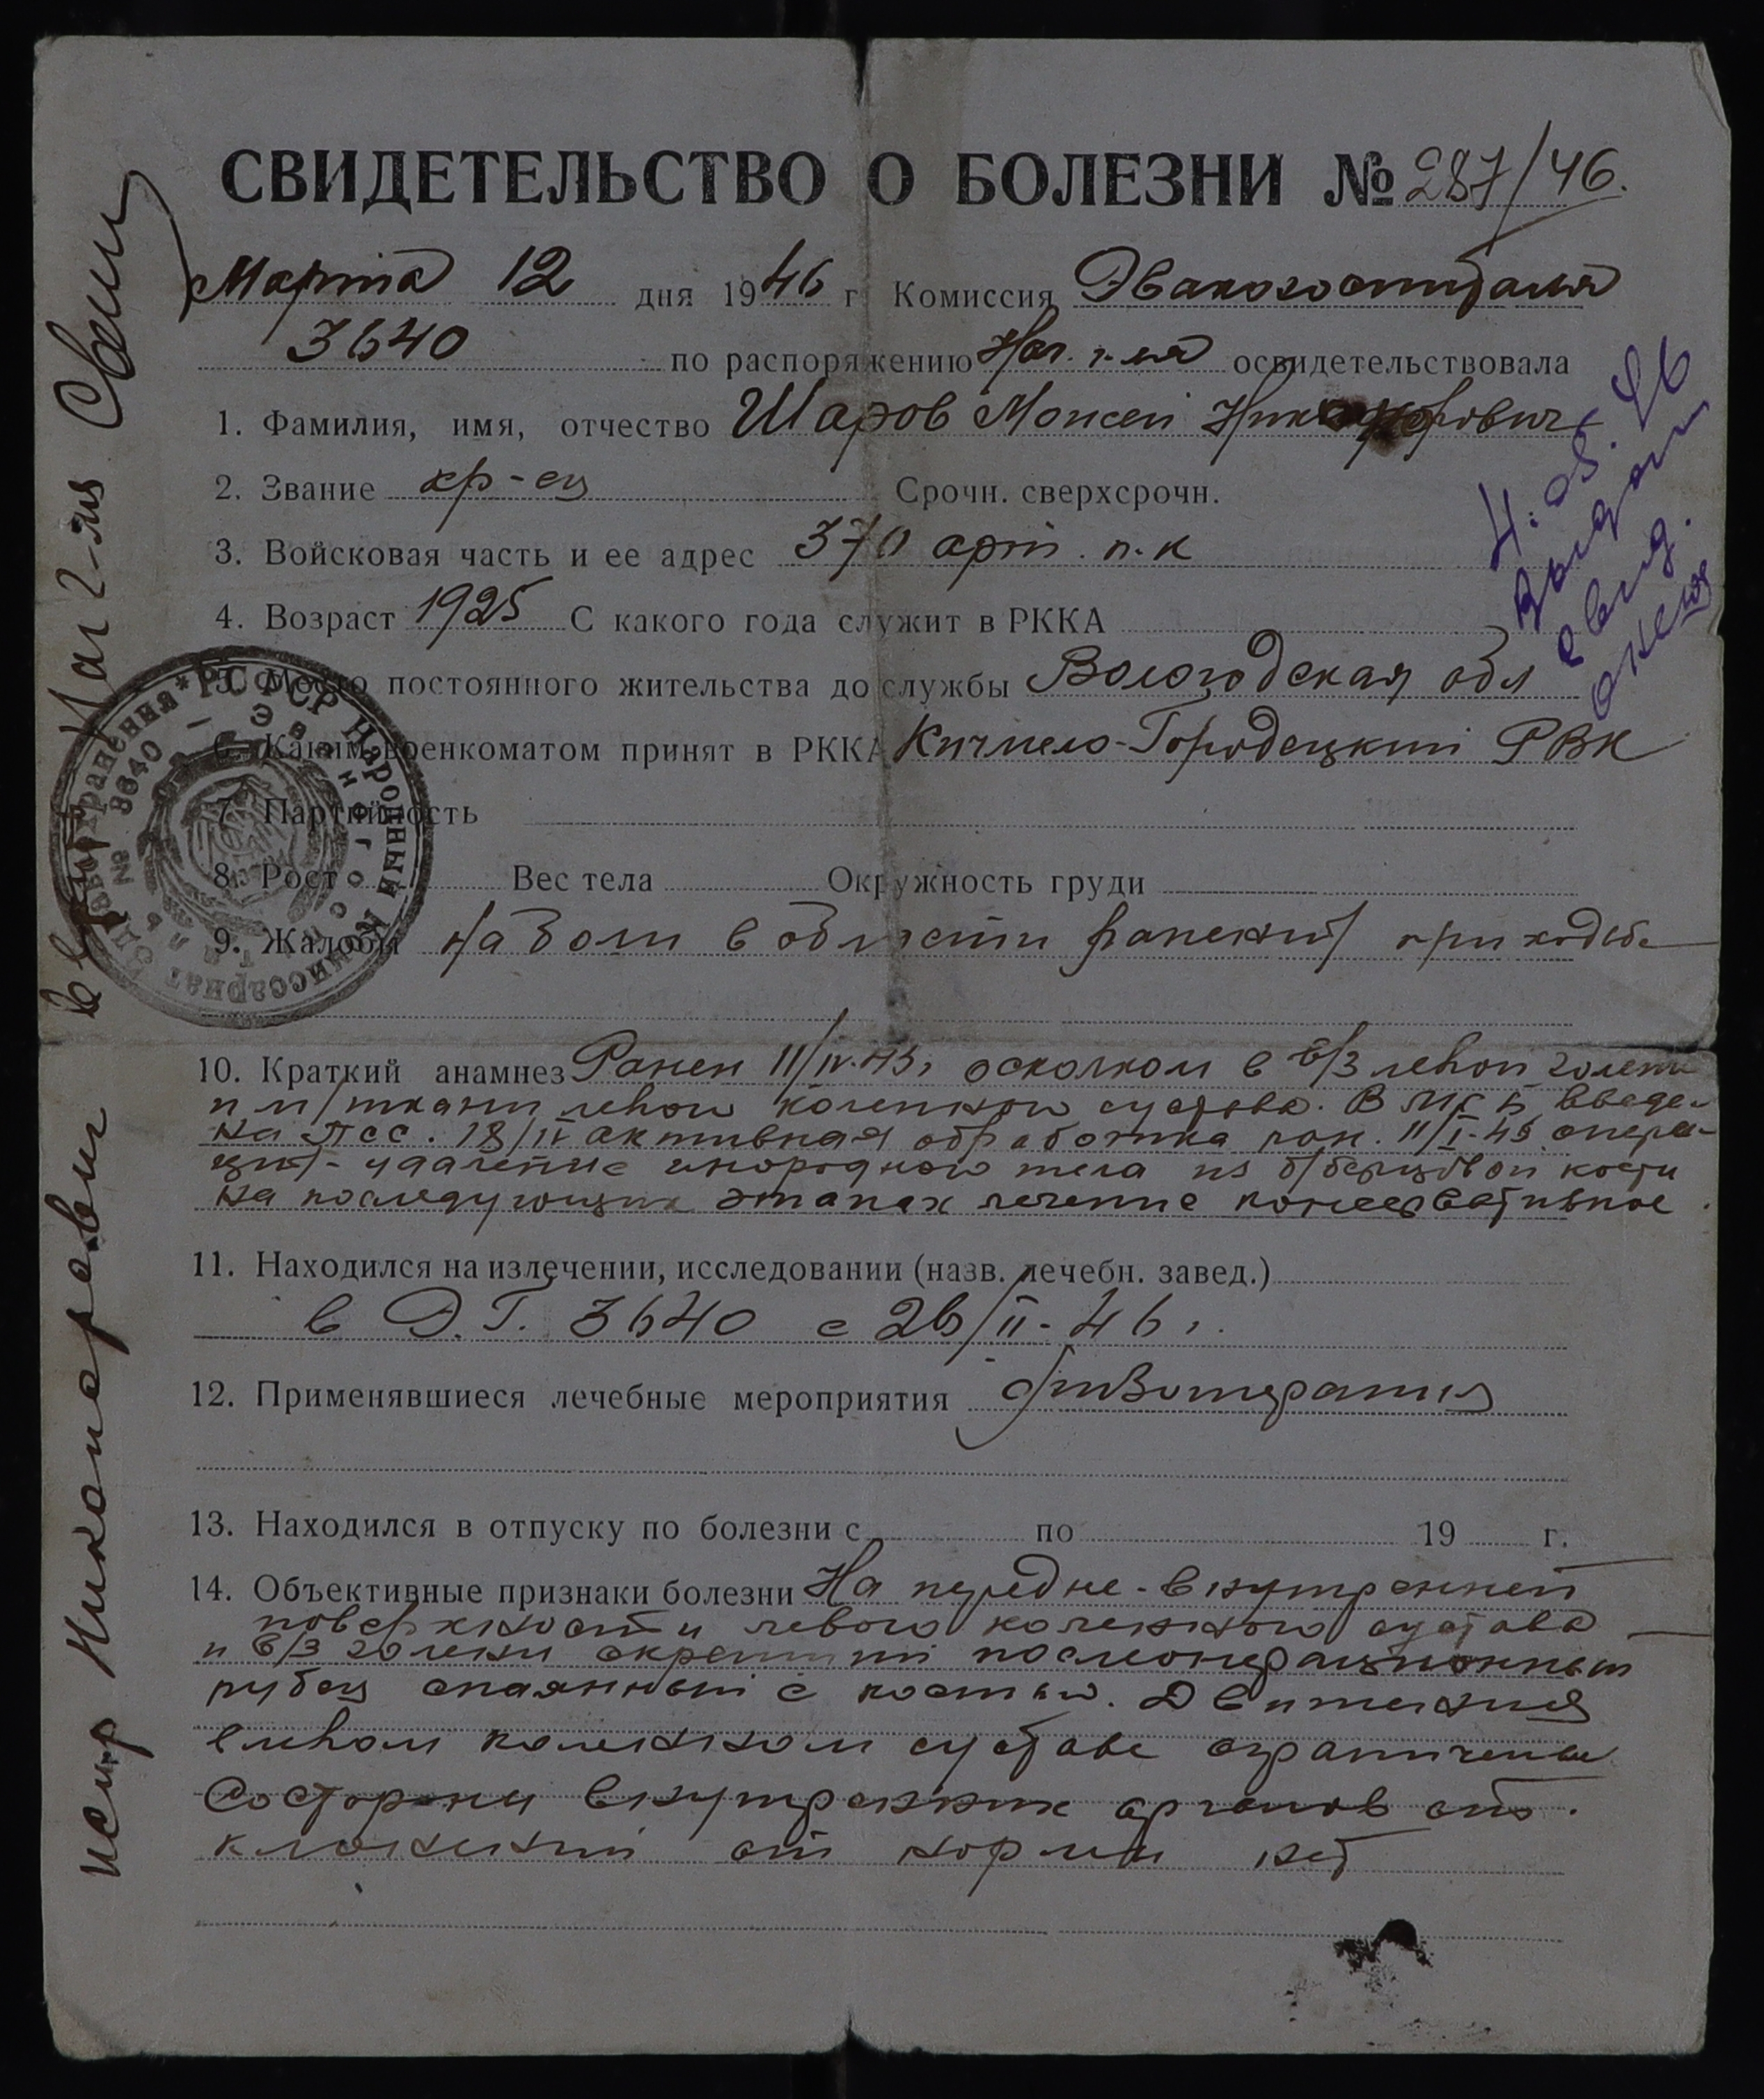 СВИДЕТЕЛЬСТВО О БОЛЕЗНИ № 287/46.
Марта 12 дня 1946 г Комиссия Эвакогоспиталя
3640 по распоряжению Нач. г-ля освидетельствовала
1. Фамилия, имя, отчество Шаров Моисей
2. Звание кр-ец Срочн. сверхсрочн.
3. Войсковая часть и ее адрес 370 арт. п.к
4. Возраст 1925 С какого года служит в РККА
5. Место постоянного жительства до службы Вологодская обл
6. Каким военкоматом принят в РККА Кичмено-Городецкий РВК
7. Партийность
8. Рост Вес тела Окружность груди
9. Жалобы На боли в области ранений при ходьбе
10. Краткий анамнез Ранен 11/IV.45г осколком в в/3 левой голени
и м/ткани левой коленного сустава. В введе-
на ПСС. 18/IV активная обработка ран. операц-
ия - удаление инородного тела из б/берцовой кости
на последующих этапах лечение консервативное.
11. Находился на излечении, исследовании (назв. лечебн. завед.)
в Э.Г. 3640 с 26/II-46г.
12. Применявшиеся лечебные мероприятия физиотерапия
13. Находился в отпуску по болезни с по 19 г.
14. Объективные признаки болезни На передне-внутренней
поверхности левого коленного сустава
и в/3 голени окрепший послеоперационный
рубец спаянный с костью. Движения
в левом коленном суставе ограничены
Со стороны внутренних органов от-
клонений от нормы нет
4.05.46
Выдано
свид.
РСФСР Народный Комиссариат Здравоохранения
Эвакогоспиталь
№ 3640
испр Никонорович верить Нач 2-ля